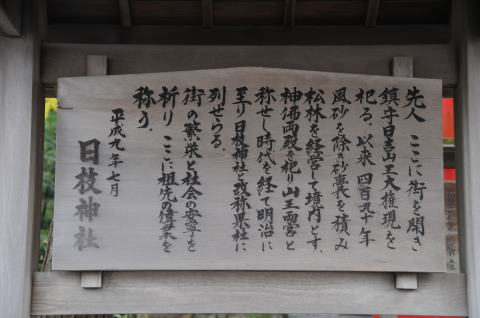 先人 ここに街を開き
鎮守日吉山王大権現を
祀る、以来 四百五十年
風砂を除き砂嚢を積み
松林を経営して境内とす、
神佛両殿を祀り山王両宮と
称せし時代を経て明治に
至り日枝神社と改称県社に
列せらる
街の繁栄と社会の安寧を
祈り ここに祖先の偉業を
称う、
平成九年七月
日枝神社